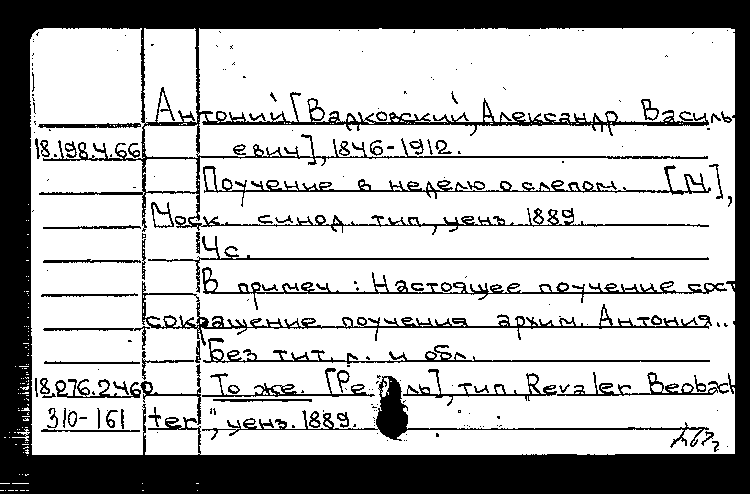 Антоний [Вадковский, Александр Василь-
18.198.4.66 евич], 1846-1912.
Поучение в неделю о слепом. [М.],
Моск. синод. тип., ценз. 1889.
4с.
В примеч.: Настоящее поучение сост
сокращение поучения архим. Антония...
Без тит. л. и обл.
18.276.2.460. То же. [Ре ль], тип. „Revaler Beobach
310-161 ter", ценз. 1889.